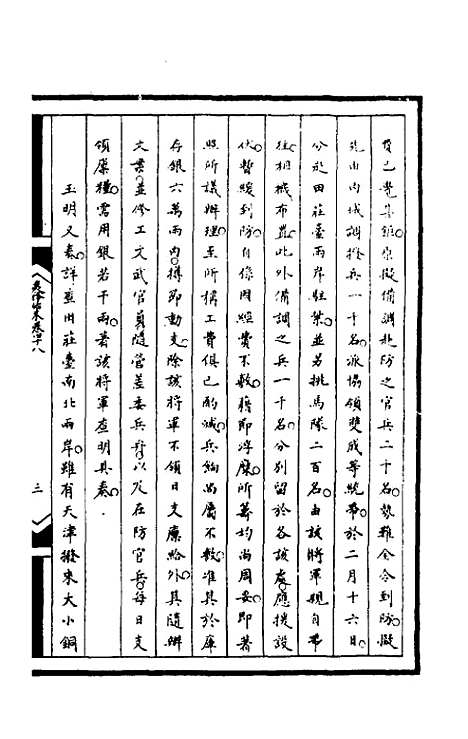 費已覺其鉅原擬備調赴防之官兵二千名勢難全令到防擬
先由內城調撥兵一千名派協領雙成等統帶於二月十六日
分起田莊臺兩岸駐紮並另挑馬隊二百名由該將軍親自帶
往相機布置此外備調之兵一千名分別留於各該處應援設
伏暫緩到防自係因經費不敷藉節浮糜所籌均尚周妥即著
照所議辦理至所稱工費俱已酌減兵餉尚屬不敷准其於庫
存銀六萬兩內撙節動支除該將軍不領日支廩給外其隨辦
文案並修工文武官員隨營差委兵丁以及在防官兵每日支
領廩糧需用銀若干兩著該將軍查明具奏
玉明又奏詳查田莊臺南北兩岸雖有天津撥來大小銅
夷務始末卷四十八
三